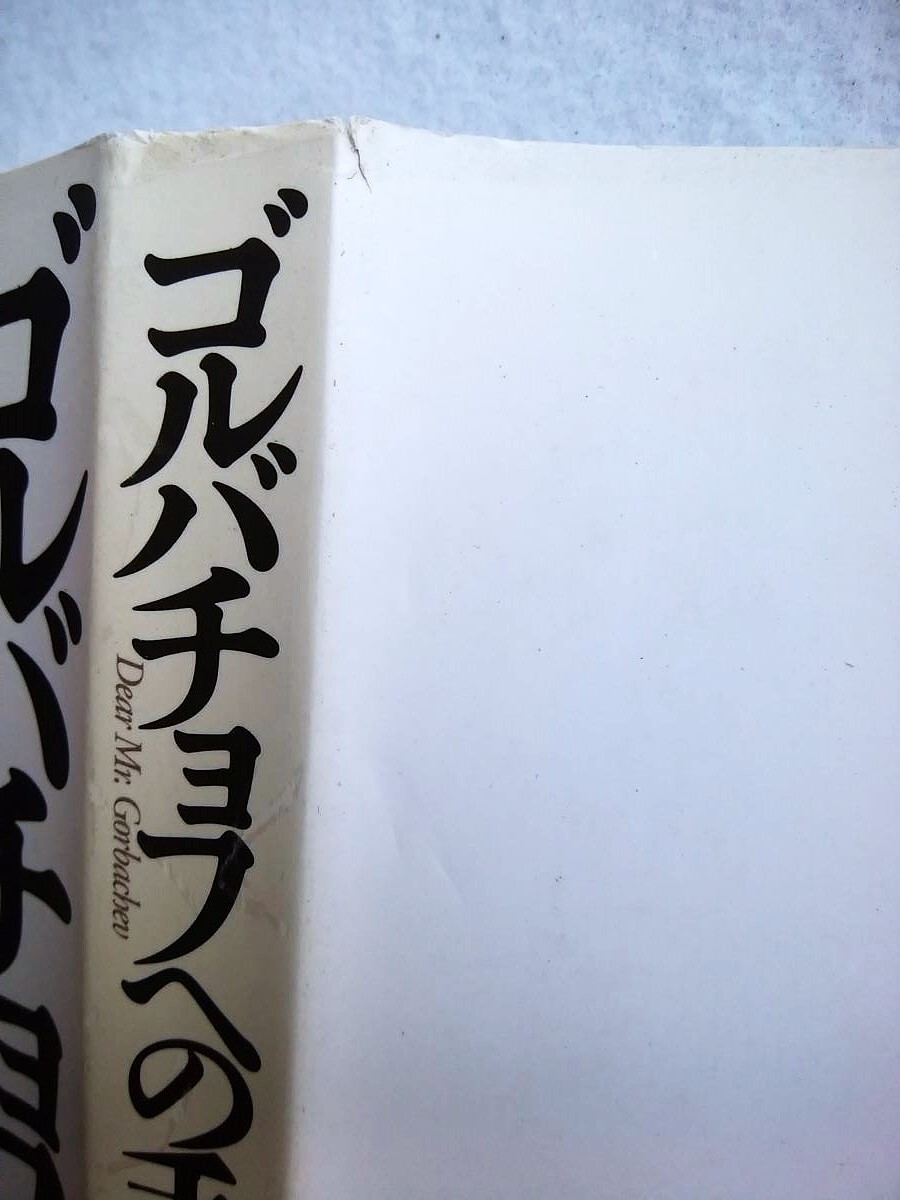 ゴルバチョフへの
Dear Mr. Gorbachev
ゴルバチョ